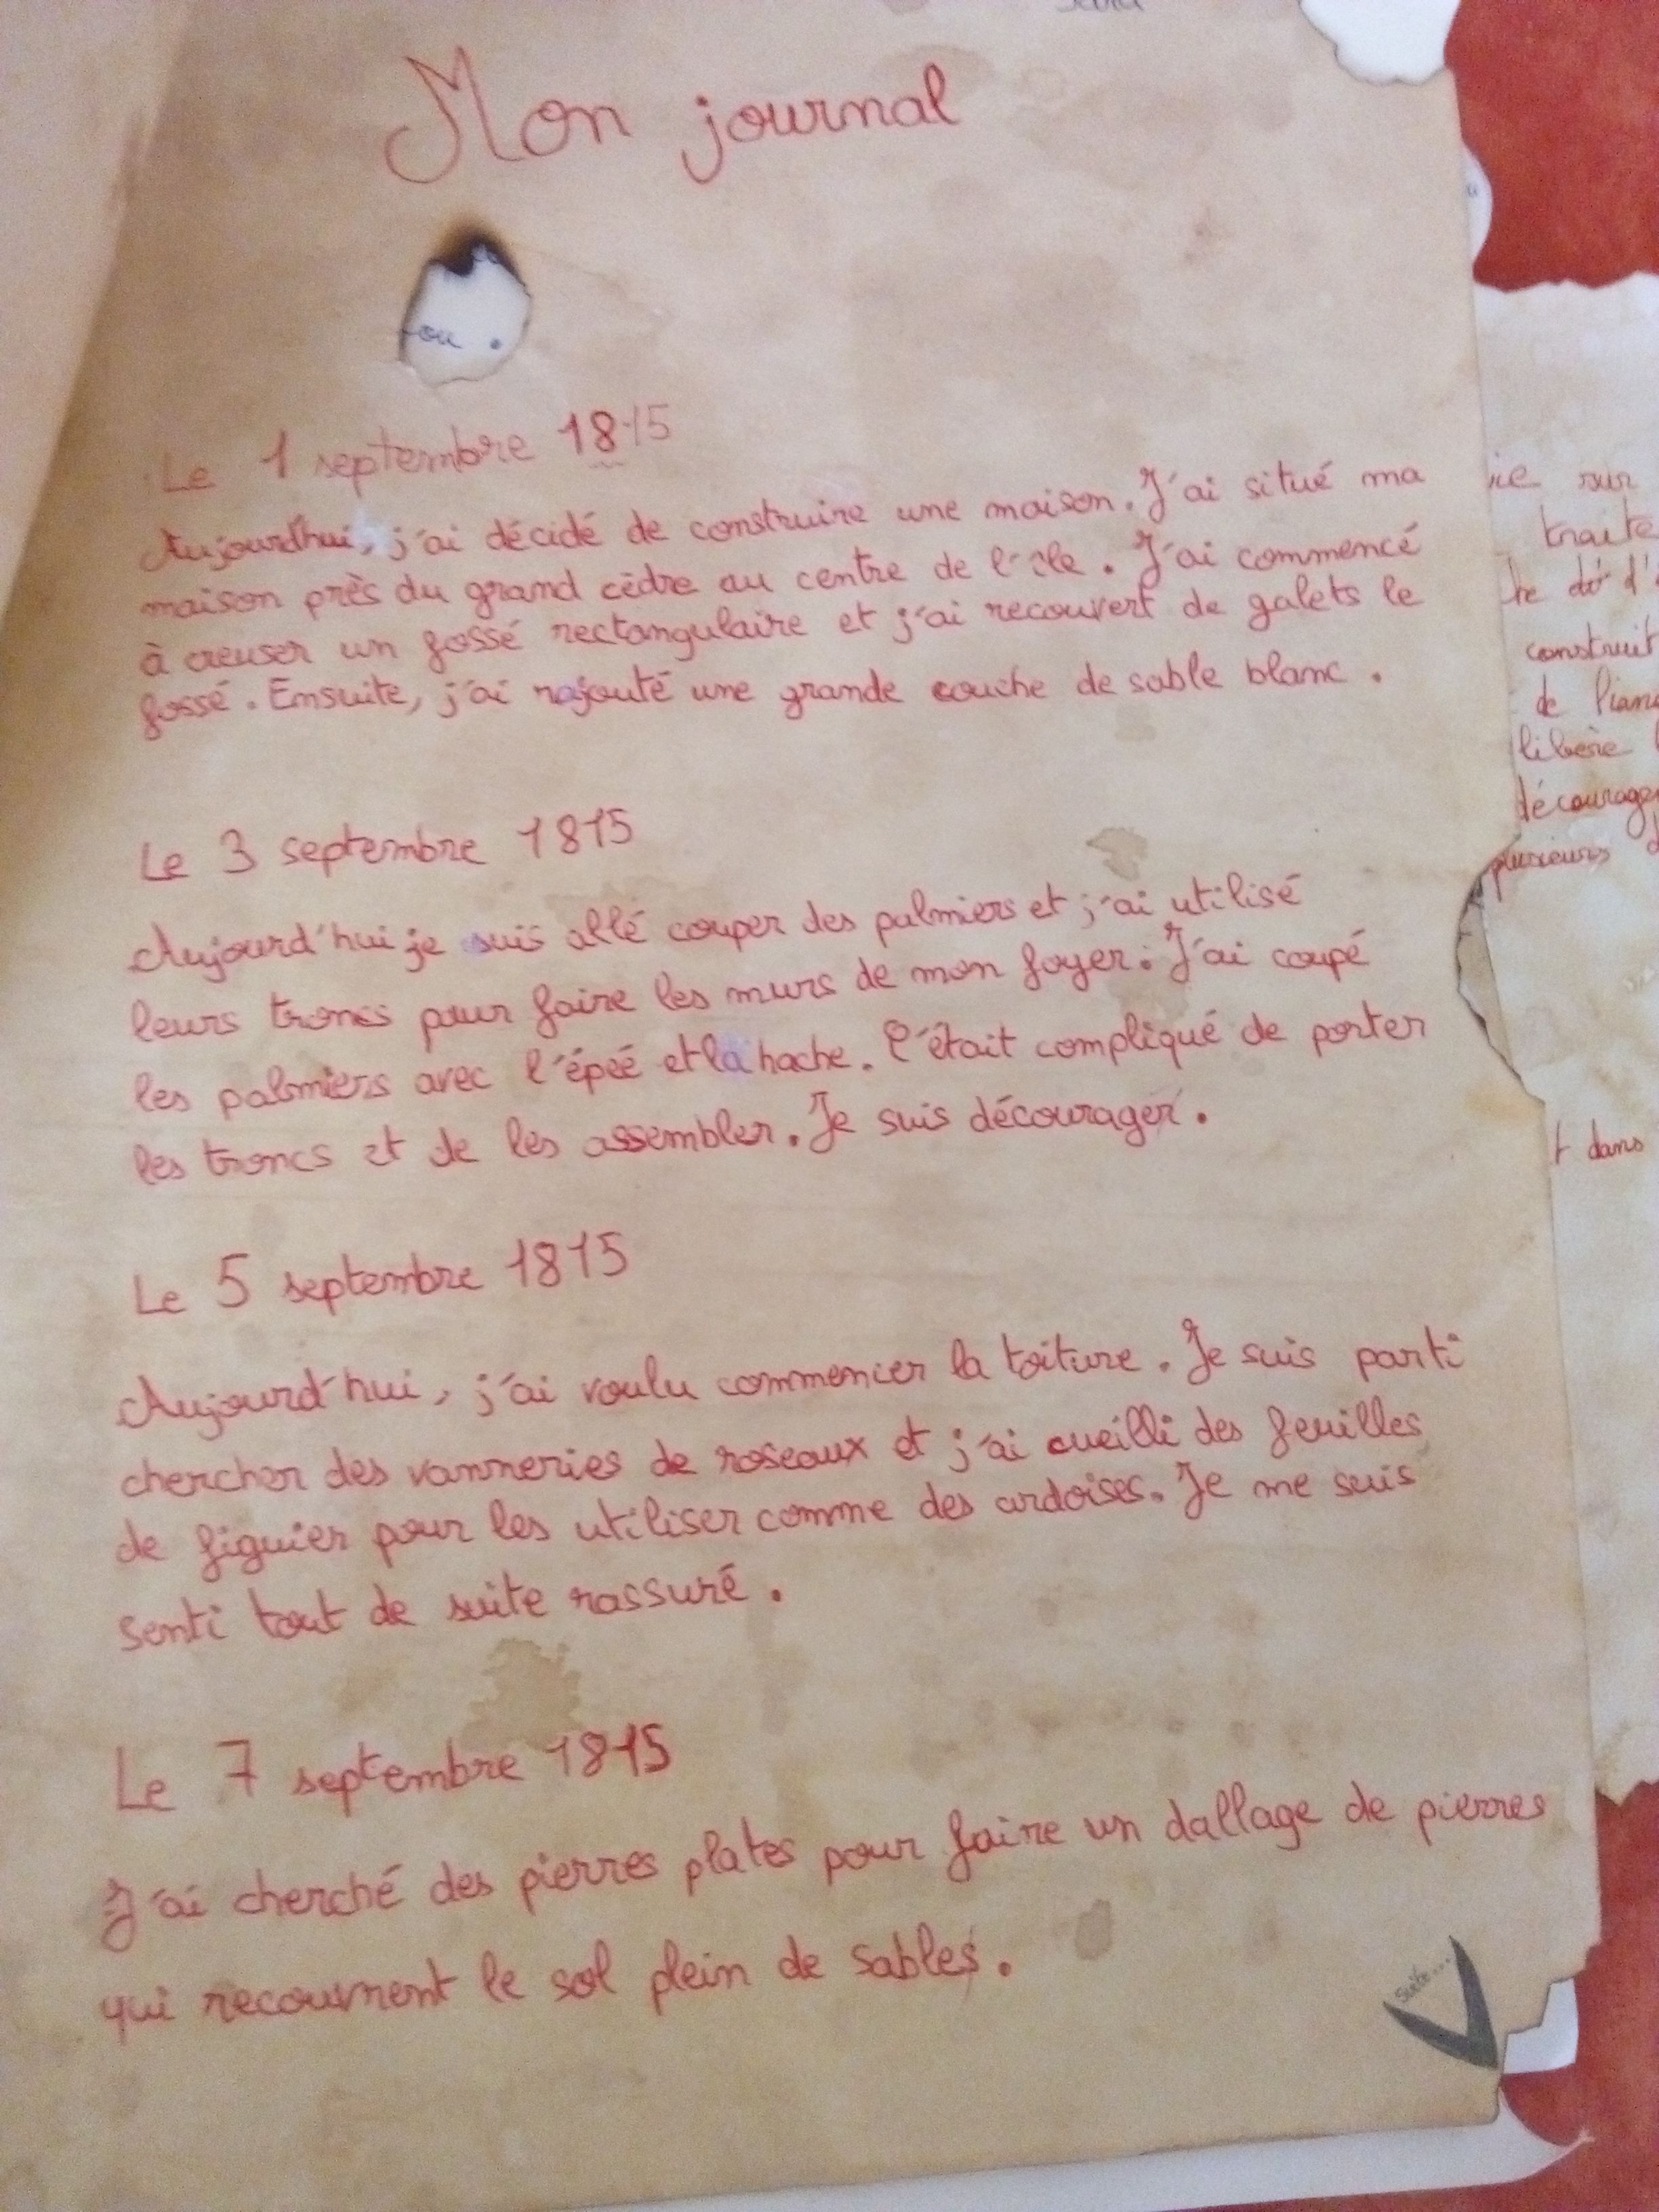 Mon journal
ou .
Le 1 septembre 1815
Aujourd'hui, j'ai décidé de construire une maison. J'ai situé ma
maison près du grand cèdre au centre de l'île. J'ai commencé
à creuser un fossé rectangulaire et j'ai recouvert de galets le
fossé. Ensuite, j'ai rajouté une grande couche de sable blanc.
Le 3 septembre 1815
Aujourd'hui je suis allé couper des palmiers et j'ai utilisé
leurs troncs pour faire les murs de mon foyer. J'ai coupé
les palmiers avec l'épeé et la hache. C'était compliqué de porter
les troncs et de les assembler. Je suis décourager.
Le 5 septembre 1815
Aujourd'hui, j'ai voulu commencer la toiture. Je suis parti
chercher des vanneries de roseaux et j'ai cueilli des feuilles
de figuier pour les utiliser comme des ardoises. Je me suis
senti tout de suite rassuré.
Le 7 septembre 1815
J'ai cherché des pierres plates pour faire un dallage de pierres
qui recouvrent le sol plein de sables.
suite...
ie sur
traite
construit
de
libère
plusieurs
t dans